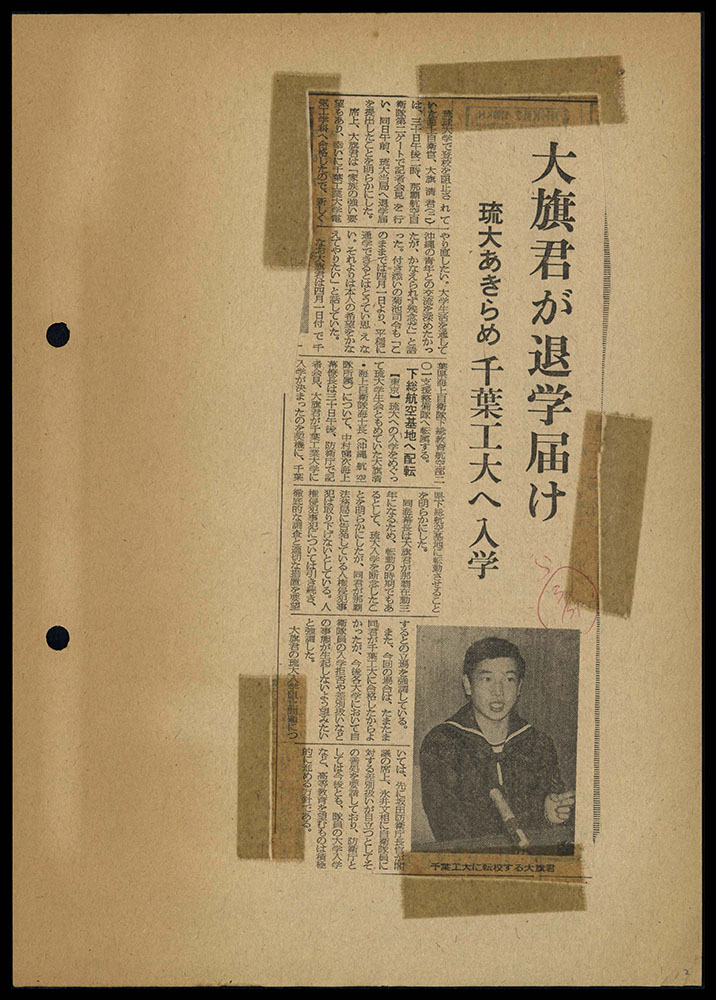 大旗君が退学届け
琉大あきらめ 千葉工大へ入学
琉球大学で登校を阻止されて
いた海上自衛官、大旗 清君(二
は、三十日午後二時、那覇航空自
衛隊第二ゲートで記者会見を行
い、同日午前、琉大当局へ退学届
を提出したことを明らかにした。
席上、大旗君は「家族の強い要
望もあり、幸いに千葉工業大学電
気工学科へ合格したので、新しく
やり直したい。大学生活を通して
沖縄の青年との交流を深めたかっ
たが、かなえられず残念だ」と語
った。付き添いの菊池司令も「こ
のままでは四月一日より、平穏に
通学できるとはとうてい思えな
い。それよりは本人の希望をかな
えてやりたい」と話していた。
なお大旗君は四月一日付で千
葉県海上自衛隊下総教育航空部二
〇一支援整備隊へ転属する。
下総航空基地へ配転
【東京】琉大への入学をめぐっ
て琉大学生会ともめていた大旗清
・海上自衛隊海士長(沖縄航空
隊所属)について、中村悌次海上
幕僚長は三十日午後、防衛庁で記
者会見、大旗君が千葉工業大学に
入学が決まったのを契機に、千葉
県下総航空基地に転勤させること
を明らかにした。
同海幕長は大旗君が那覇在勤三
年になるため、転勤の時期でもあ
るとして、琉大入学を断念したこ
とを明らかにしたが、同君が那覇
法務局に提訴している人権侵犯事
犯は取り下げないとしている。人
権侵犯事犯については引き続き、
徹底的な調査と適切な措置を要望
するとの立場を強調している。
また、今回の場合は、たまたま
同君が千葉工大に合格したからよ
かったが、今後各大学において自
衛隊員の入学拒否や差別扱いなど
の事態が生起しないよう望みたい
と強調した。
大旗君の琉大入学阻止問題につ
いては、先に坂田防衛庁長官が閣
議の席上、永井文相に自衛隊員に
対する差別扱いが目立つとしてそ
の善処を要請しており、防衛庁と
しては今後とも、隊員の大学入学
など、高等教育を望むものは積極
的に認める方針である。
千葉工大に転校する大旗君